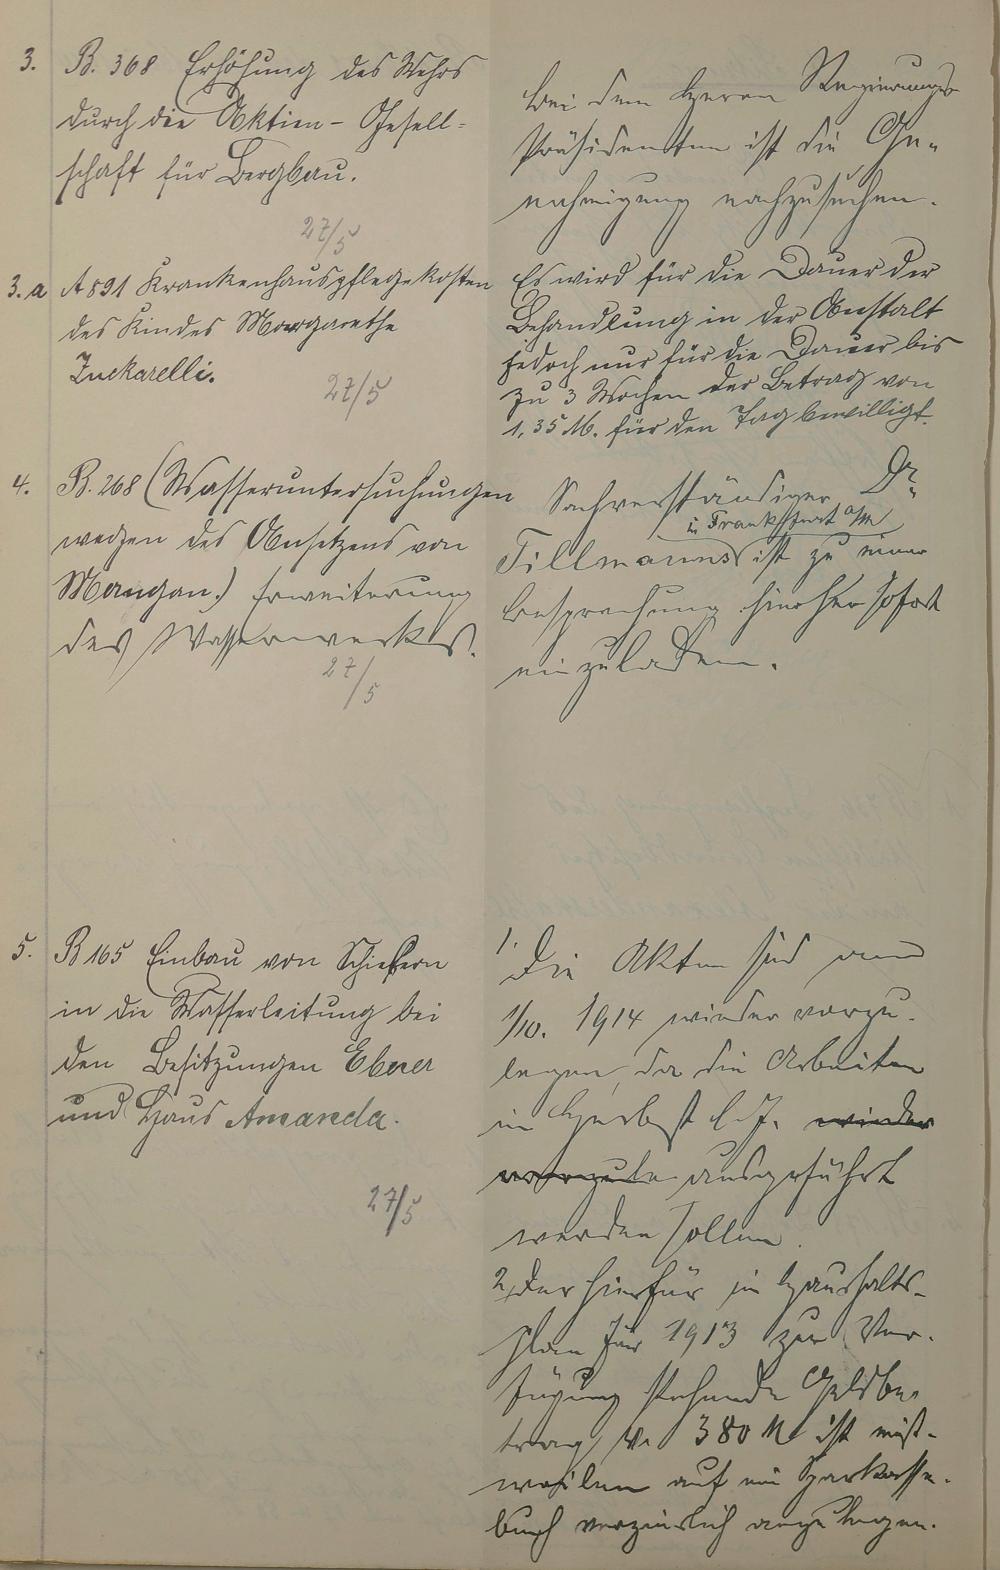 3. B. 368 Erhöhung des Wehrs
durch die Aktien-Gesell-
schaft für Bergbau.
27/5
bei dem Herrn Regierungs
Präsidenten ist die Ge-
nehmigung nachzusuchen.
3.a A 891 Krankenhauspflegekosten
des Kindes Margarethe
Zuckarelli.
27/5
Es wird für die Dauer der
Behandlung in der Anstalt
jedoch nur für die Dauer bis
zu 3 Wochen der Betrag von
1,35 M. für den Tag bewilligt.
4. B. 268 (Wasseruntersuchungen
wegen des Ansetzens von
Mangan.) Erweiterung
des Wasserwerks.
27/5
Sachverständiger Dr.
i. Frankfurt a/M
Tillmanns ist zu einer
Besprechung hierher sofort
einzuladen.
5. B 165 Einbau von Schiebern
in die Wasserleitung bei
den Besitzungen Ebner
und Haus Amanda.
27/5
1. Die Akten sind am
1/10. 1914 wieder vorzu-
legen, da die Arbeiten
im Herbst l. J. wieder
vorzule ausgeführt
werden sollen.
2, Der hierfür im Haushalts-
plan für 1913 zur Ver-
fügung stehende Geldbe-
trag v. 380 M ist einst-
weilen auf ein Sparkasse-
buch verzinslich anzulegen.